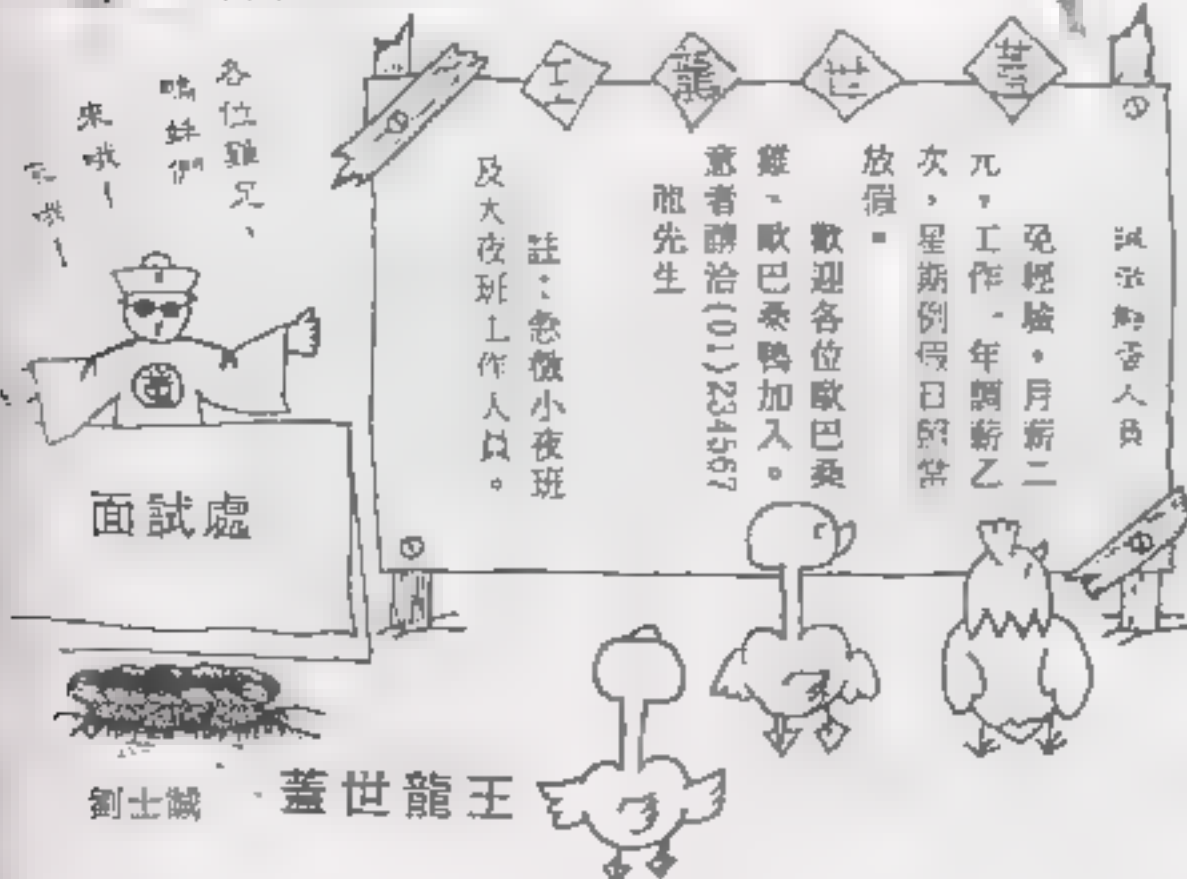 蓋世龍王
誠徵臨雷人員
免經驗。月薪二
元,工作一年調薪乙
次,星期例假日照常
放假。
歡迎各位歐巴桑
雞、歐巴桑鴨加入。
意者請洽(01)234567
龍先生
註:急徵小夜班
及大夜班工作人員。
各位雞兄、
鴨妹們
來哦!
來哦!
面試處
劉士誠
蓋世龍王